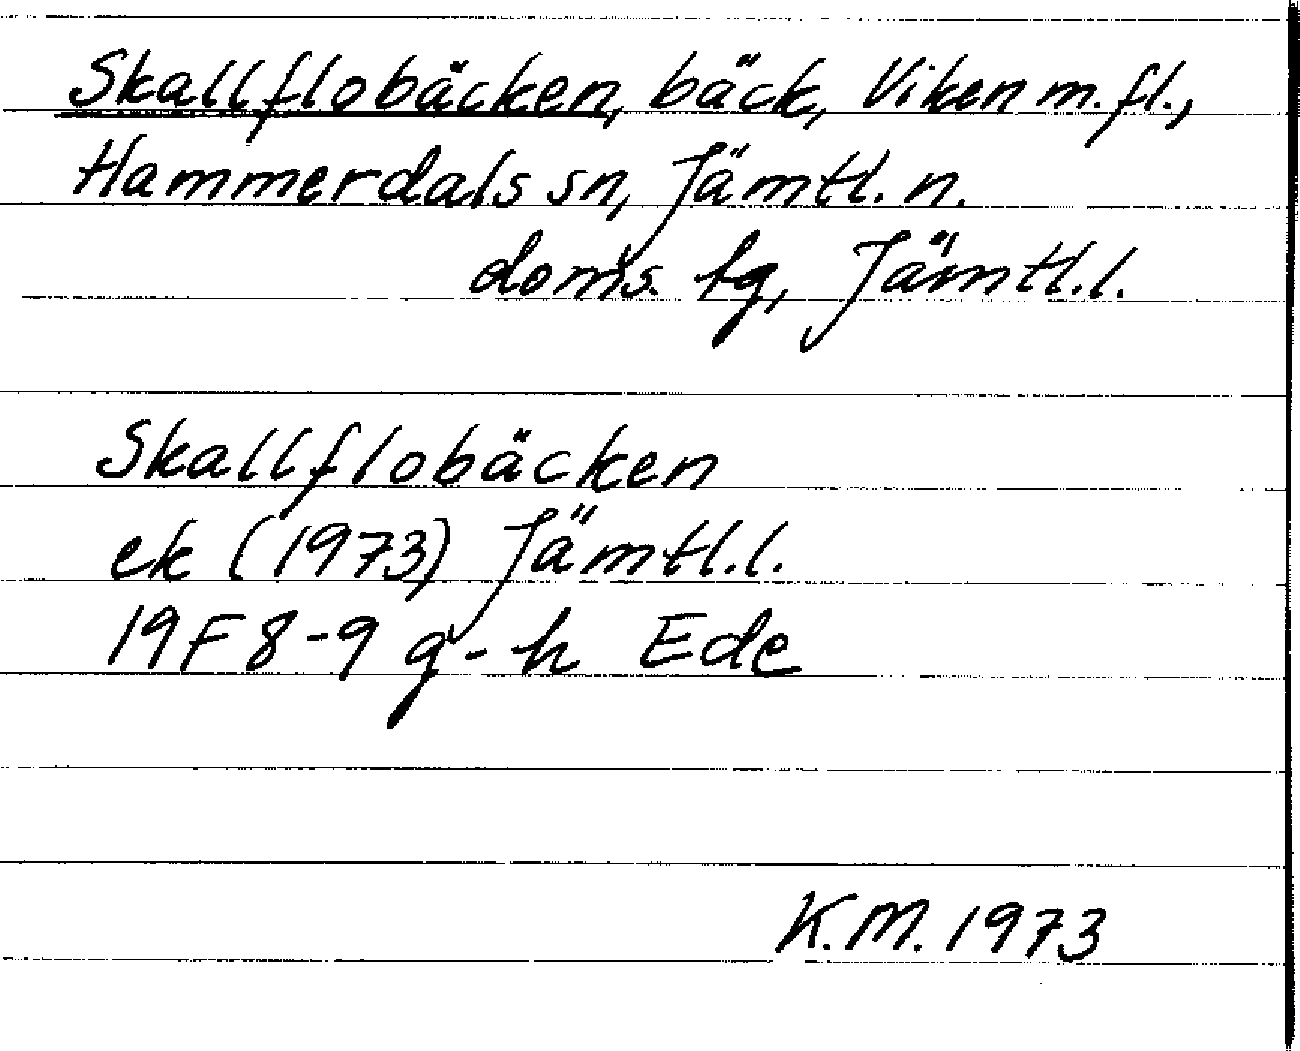 Skallflobäcken, bäck, Viken m.fl.,
Hammerdals sn, Jämtl. n.
doms. tg, Jämtl.l.
Skallflobäcken
ek (1973) Jämtl.l.
19F 8-9 g-h Ede
K.M. 1973